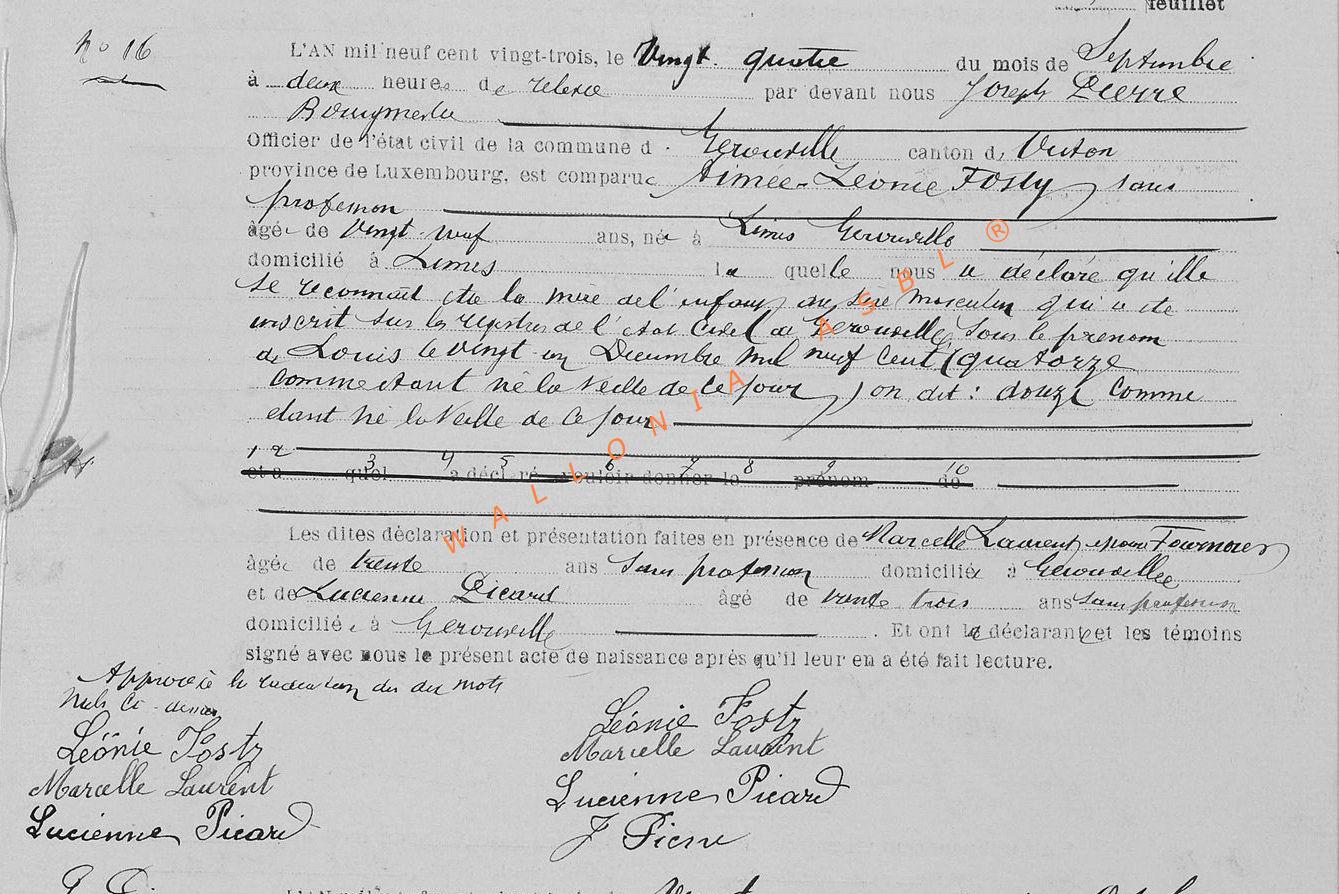 feuillet
No 16
L'AN mil neuf cent vingt-trois, le Vingt quatre du mois de Septembre
à deux heures de relevée par devant nous Joseph Pierre
Bourgmestre
Officier de l'état civil de la commune d Gerouville canton de Virton
province de Luxembourg, est comparue Aimée-Léonie Fosty, sans
profession
âgée de Vingt neuf ans, née à Limes Gerouville
domicilié à Limes laquelle nous a déclaré qu'elle
se reconnait être la mère de l'enfant du sexe masculin qui a été
inscrit sur les registres de l'état Civil de Gerouville, sous le prénom
de Louis le vingt un Décembre mil neuf cent (quatorze
comme étant né la veille de ce jour) on dit : douze comme
étant né la Veille de ce jour
1 2 3 4 5 6 7 8 9 10
et a quel a déclaré vouloir donner le prénom de
Les dites déclaration et présentation faites en présence de Marcelle Laurent, épouse
âgée de trente ans Sans profession domiciliée à Gerouville
et de Lucienne Picard âgé de trente trois ans sans profession
domiciliée à Gerouville . Et ont la déclarante et les témoins
signé avec nous le présent acte de naissance après qu'il leur en a été fait lecture.
Approuvé la radiation des dix mots
nuls ci-dessus
Léonie Fosty
Marcelle Laurent
Lucienne Picard
Léonie Fosty
Marcelle Laurent
Lucienne Picard
J Pierre
L'AN mil neuf cent vingt
WALLONIA ASBL ®